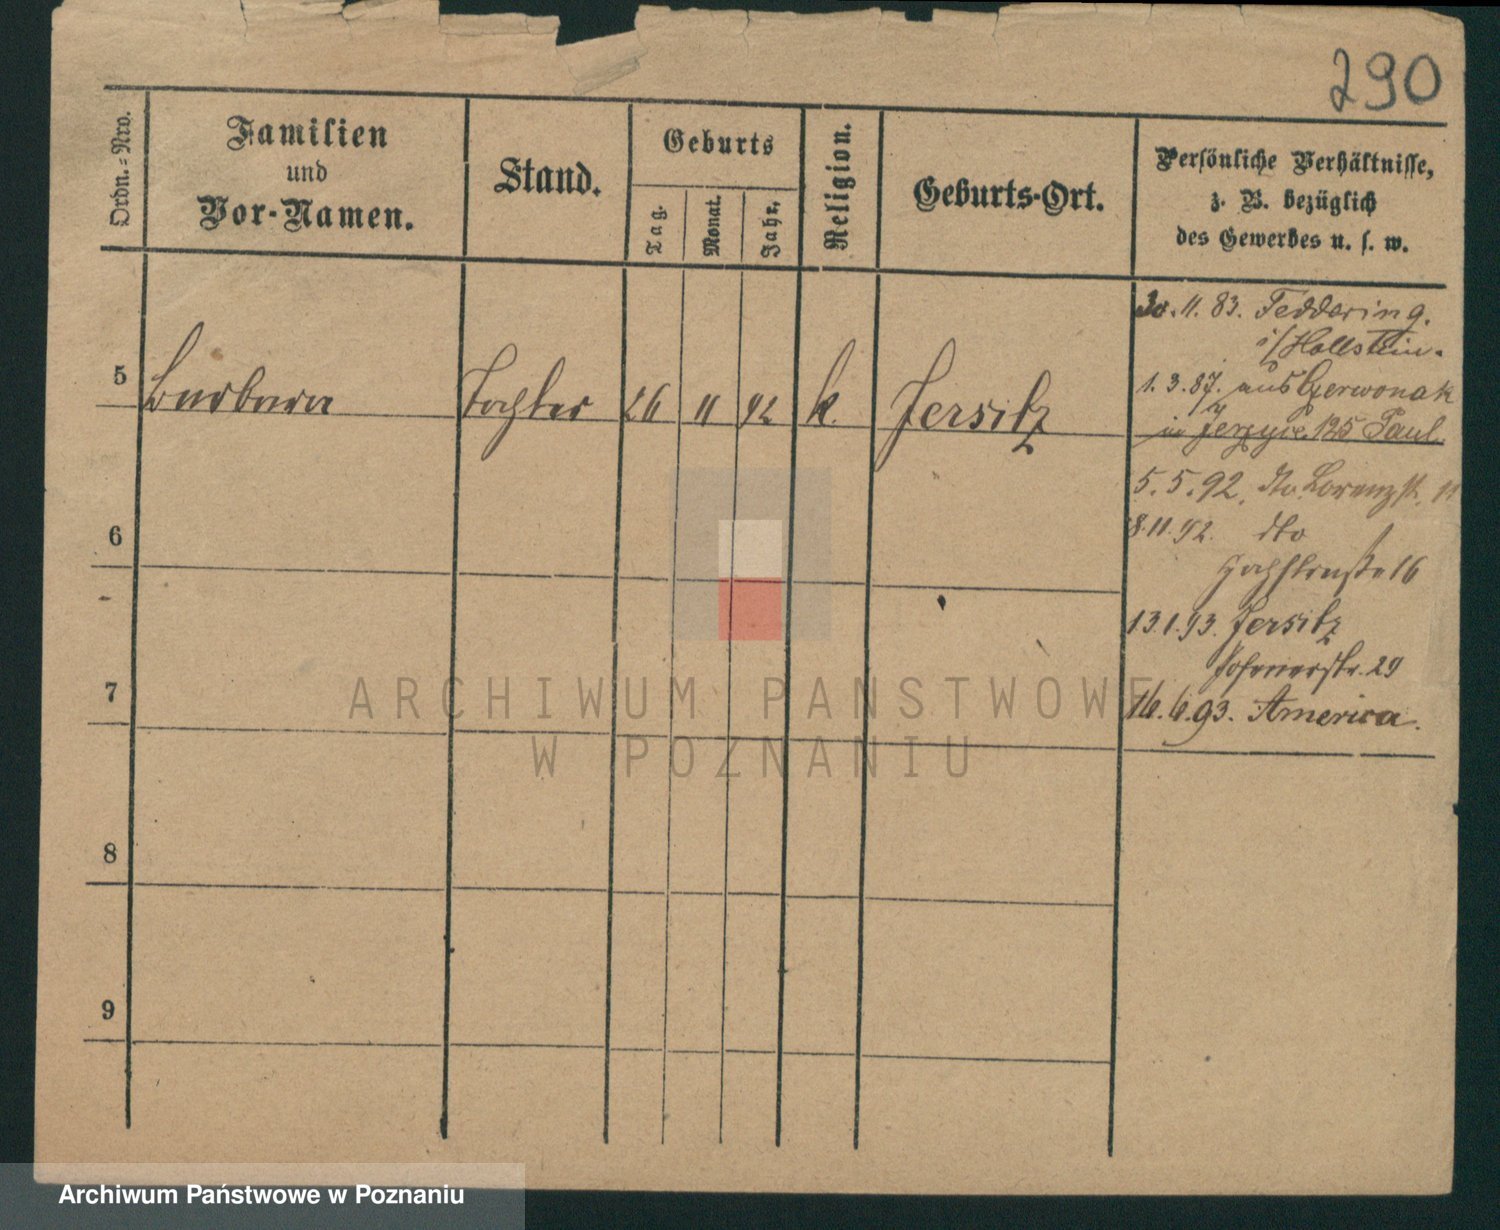 290
Ordn.-Nro.
Familien
und
Vor-Namen.
Stand.
Geburts
Tag.
Monat.
Jahr.
Religion.
Geburts-Ort.
Persönliche Verhältnisse,
z. B. bezüglich
des Gewerbes u. s. w.
5 Barbara Tochter 26 11 92 k. Jersitz
30.11.83. Feddering.
i/Hollstein.
1.3.87. aus Czerwonak
in Jerzyce 125 Paul.
5.5.92. dto Lorenzstr. 11
8.11.92. dto
Hochstraße 16
13.1.93. Jersitz
Posenerstr. 29
16.6.93. America.
6
7
8
9
ARCHIWUM PANSTWOWE
W POZNANIU
Archiwum Państwowe w Poznaniu